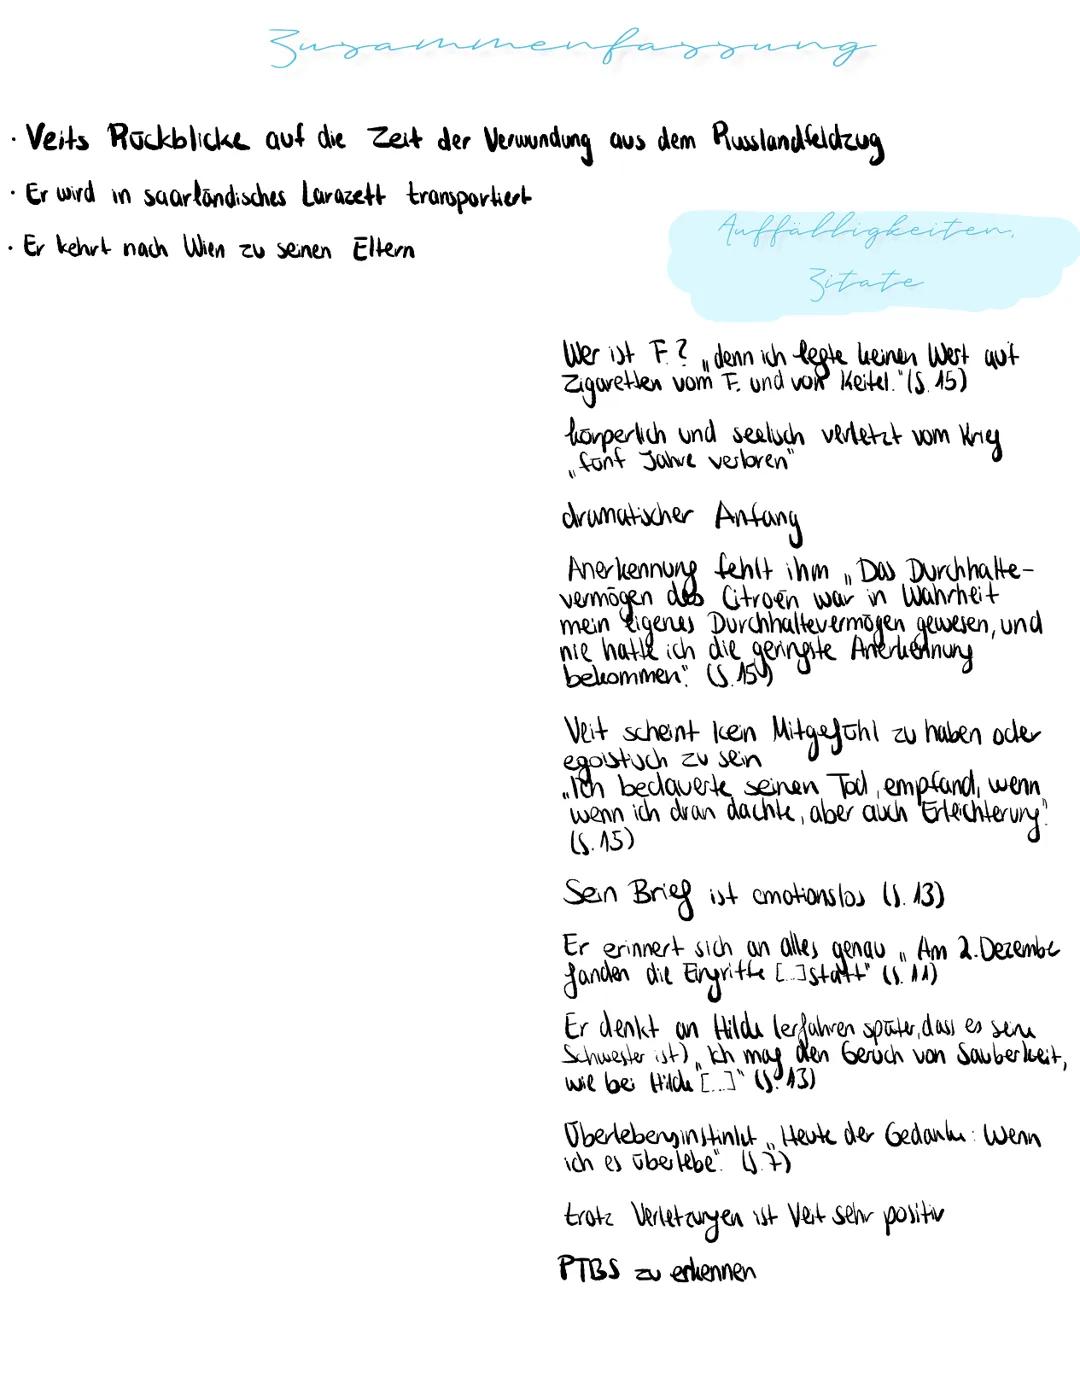 Zusammenfassung
· Veits Rückblicke auf die Zeit der Verwundung aus dem Russlandfeldzug
· Er wird in saarländisches Larazett transportiert
· Er kehrt nach Wien zu seinen Eltern
Auffälligkeiten,
Zitate
Wer ist F.? „denn ich legte keinen Wert auf
Zigaretten vom F. und von Keitel." (S. 15)
körperlich und seelisch verletzt vom Krieg
„fünf Jahre verloren"
dramatischer Anfang
Anerkennung fehlt ihm „Das Durchhalte-
vermögen des Citroën war in Wahrheit
mein eigenes Durchhaltevermögen gewesen, und
nie hatte ich die geringste Anerkennung
bekommen". (S. 15)
Veit scheint kein Mitgefühl zu haben oder
egoistisch zu sein
„Ich bedauerte seinen Tod, empfand, wenn
wenn ich dran dachte, aber auch Erleichterung".
(S. 15)
Sein Brief ist emotionslos (S. 13)
Er erinnert sich an alles genau „Am 2. Dezember
fanden die Eingriffe [...] statt" (S. 11)
Er denkt an Hilde (erfahren später, dass es seine
Schwester ist) „Ich mag den Geruch von Sauberkeit,
wie bei Hilde [...]" (S. 13)
Überlebensinstinkt „Heute der Gedanke: Wenn
ich es überlebe". (S. 7)
trotz Verletzungen ist Veit sehr positiv
PTBS zu erkennen